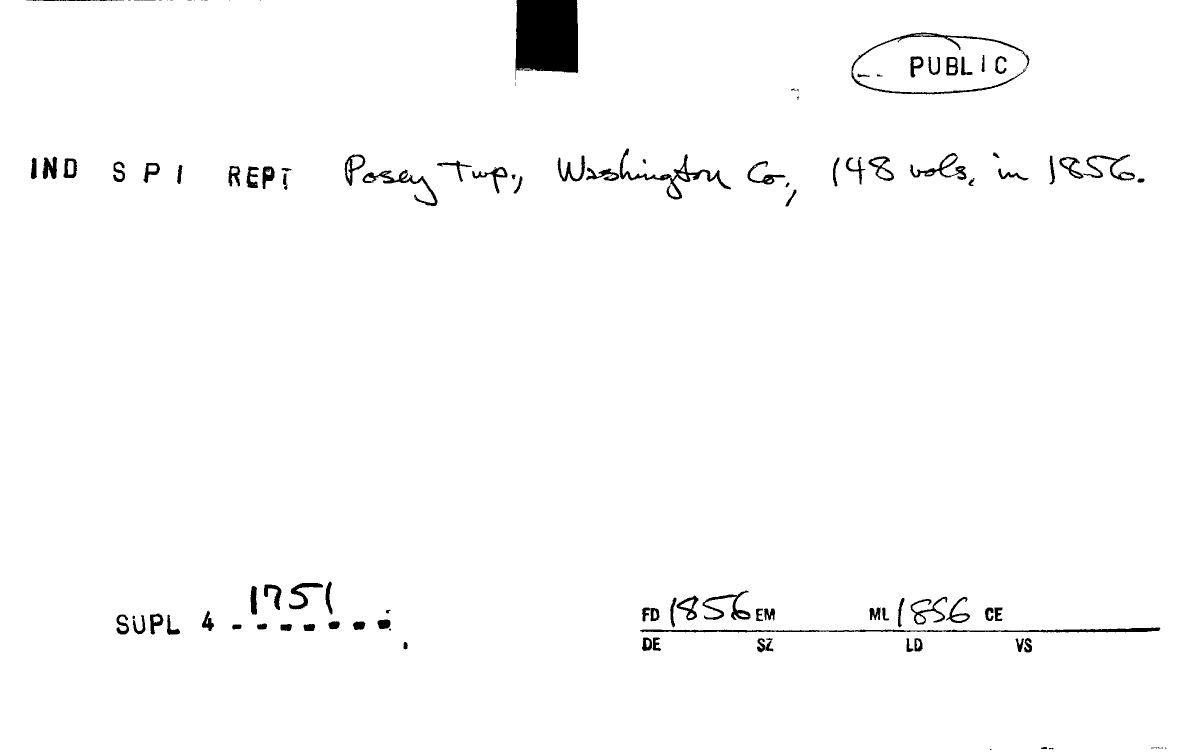 -- PUBLIC
IND S P I REPT Posey Twp., Washington Co., 148 vols. in 1856.
SUPL 4 1751
FD 1856 EM ML 1856 CE
DE SZ LD VS